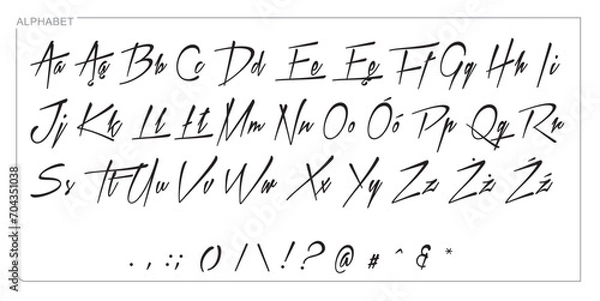 ALPHABET
Aa Ąą Bb Cc Dd Ee Ęę Ff Gg Hh Ii
Jj Kk Ll Łł Mm Nn Oo Óó Pp Qq Rr
Ss Tt Uu Vv Ww Xx Yy Zz Żż Źź
. , : ; () / | \ ! ? @ # ^ & *
Adobe Stock | #704351038